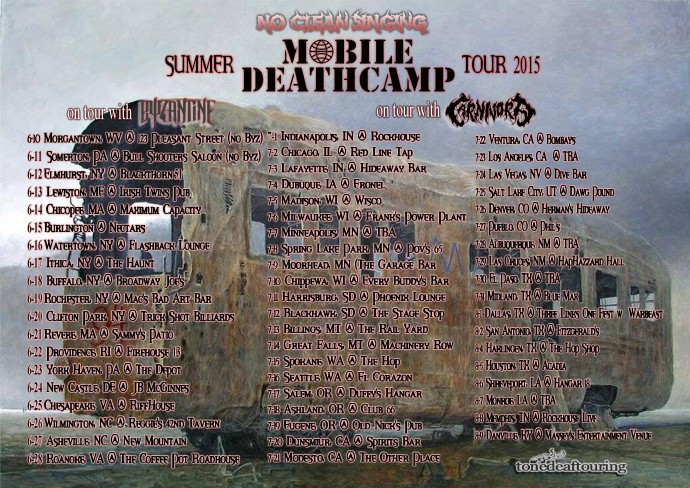 NO CLEAN SINGING
SUMMER MOBILE DEATHCAMP TOUR 2015
on tour with BYZANTINE
on tour with CARNIVORA
6-10 Morgantown, WV @ 123 Pleasant Street (no Byz)
6-11 Somerton, PA @ Bull Shooters Saloon (no Byz)
6-12 Elmhurst, NY @ Blackthorn51
6-13 Lewiston, ME @ Irish Twins Pub
6-14 Chicopee, MA @ Maximum Capacity
6-15 Burlington @ Nectars
6-16 Watertown, NY @ Flashback Lounge
6-17 Ithica, NY @ The Haunt
6-18 Buffalo, NY @ Broadway Joe's
6-19 Rochester, NY @ Mac's Bad Art Bar
6-20 Clifton Park, NY @ Trick Shot Billiards
6-21 Revere, MA @ Sammy's Patio
6-22 Providence, RI @ Firehouse 13
6-23 York Haven, PA @ The Depot
6-24 New Castle, DE @ JB McGinnes
6-25 Chesapeake, VA @ RiffHouse
6-26 Wilmington, NC @ Reggie's 42nd Tavern
6-27 Asheville, NC @ New Mountain
6-28 Roanoke, VA @ The Coffee Pot Roadhouse
7-1 Indianapolis, IN @ Rockhouse
7-2 Chicago, IL @ Red Line Tap
7-3 Lafayette, IN @ Hideaway Bar
7-4 Dubuque, IA @ Eronel
7-5 Madison, WI @ Wisco
7-6 Milwaukee, WI @ Frank's Power Plant
7-7 Minneapolis, MN @ TBA
7-8 Spring Lake Park, MN @ Pov's 65
7-9 Moorhead, MN (The Garage Bar
7-10 Chippewa, WI @ Every Buddy's Bar
7-11 Harrisburg, SD @ Phoenix Lounge
7-12 Blackhawk, SD @ The Stage Stop
7-13 Billings, MT @ The Rail Yard
7-14 Great Falls, MT @ Machinery Row
7-15 Spokane, WA @ The Hop
7-16 Seattle, WA @ El Corazon
7-17 Salem, OR @ Duffy's Hangar
7-18 Ashland, OR @ Club 66
7-19 Eugene, OR @ Old Nick's Pub
7-20 Dunsmuir, CA @ Spirits Bar
7-21 Modesto, CA @ The Other Place
7-22 Ventura, CA @ Bombay's
7-23 Los Angeles, CA @ TBA
7-24 Las Vegas, NV @ Dive Bar
7-25 Salt Lake City, UT @ Dawg Pound
7-26 Denver, CO @ Herman's Hideaway
7-27 Pueblo, CO @ Phil's
7-28 Albuquerque, NM @ TBA
7-29 Las Cruces, NM @ HapHazzard Hall
7-30 El Paso, TX @ TBA
7-31 Midland, TX @ Blue Max
8-1 Dallas, TX @ Three Links One Fest w Warbeast
8-2 San Antonio, TX @ Fitzgerald's
8-4 Harlingen, TX @ The Hop Shop
8-5 Houston, TX @ Acadia
8-6 Shreveport, LA @ Hangar 18
8-7 Monroe, LA @ TBA
8-8 Memphis, TN @ Rockhouse Live
8-9 Danville, KY @ Massey's Entertainment Venue
tonedeaftouring